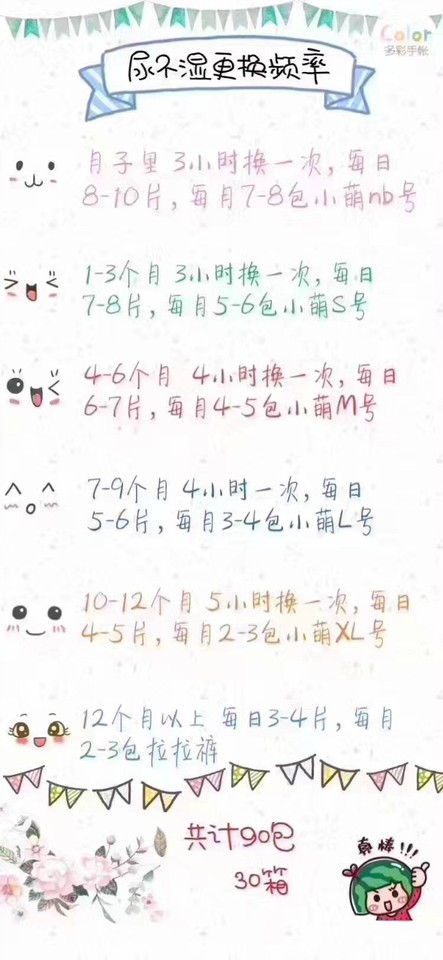 Color
多彩手帐
尿不湿更换频率
月子里 3小时换一次，每日
8-10片，每月7-8包小萌nb号
1-3个月 3小时换一次，每日
7-8片，每月5-6包小萌S号
4-6个月 4小时换一次，每日
6-7片，每月4-5包小萌M号
7-9个月 4小时一次，每日
5-6片，每月3-4包小萌L号
10-12个月 5小时换一次，每日
4-5片，每月2-3包小萌XL号
12个月以上 每日3-4片，每月
2-3包拉拉裤
共计90包
30箱
真棒!!!